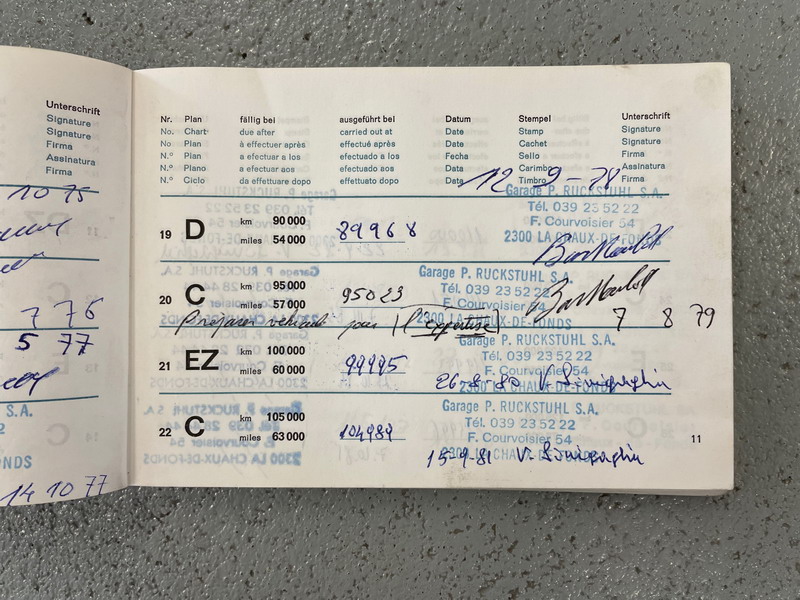 Unterschrift
Signature
Signature
Firma
Assinatura
Firma
10 75
7 7 76
5 77
S.A.
NDS
14 10 77
Nr. Plan fällig bei ausgeführt bei Datum Stempel Unterschrift
No. Chart due after carried out at Date Stamp Signature
No Plan à effectuer après effectué après Date Cachet Signature
N.º Plan a efectuar a los efectuado a los Fecha Sello Firma
N.º Plano a efectuar aos efectuado aos Data Carimbo Assinatura
N.º Ciclo da effettuare dopo effettuato dopo Data Timbro Firma
12 9 - 78
Garage P. RUCKSTUHL S.A.
Tél. 039 23 52 22
F. Courvoisier 54
2300 LA CHAUX-DE-FONDS
19 D km 90 000 89968
miles 54 000
Garage P. RUCKSTUHL S.A.
Tél. 039 23 52 22
F. Courvoisier 54
2300 LA CHAUX-DE-FONDS
20 C km 95 000 95023
miles 57 000
Préparer véhicule pour l'expertise 7 8 79
Garage P. RUCKSTUHL S.A.
Tél. 039 23 52 22
F. Courvoisier 54
2300 LA CHAUX-DE-FONDS
21 EZ km 100 000 99995
miles 60 000
26-8-80
Garage P. RUCKSTUHL S.A.
Tél. 039 23 52 22
F. Courvoisier 54
2300 LA CHAUX-DE-FONDS
22 C km 105 000 104989
miles 63 000
15-9-81
11